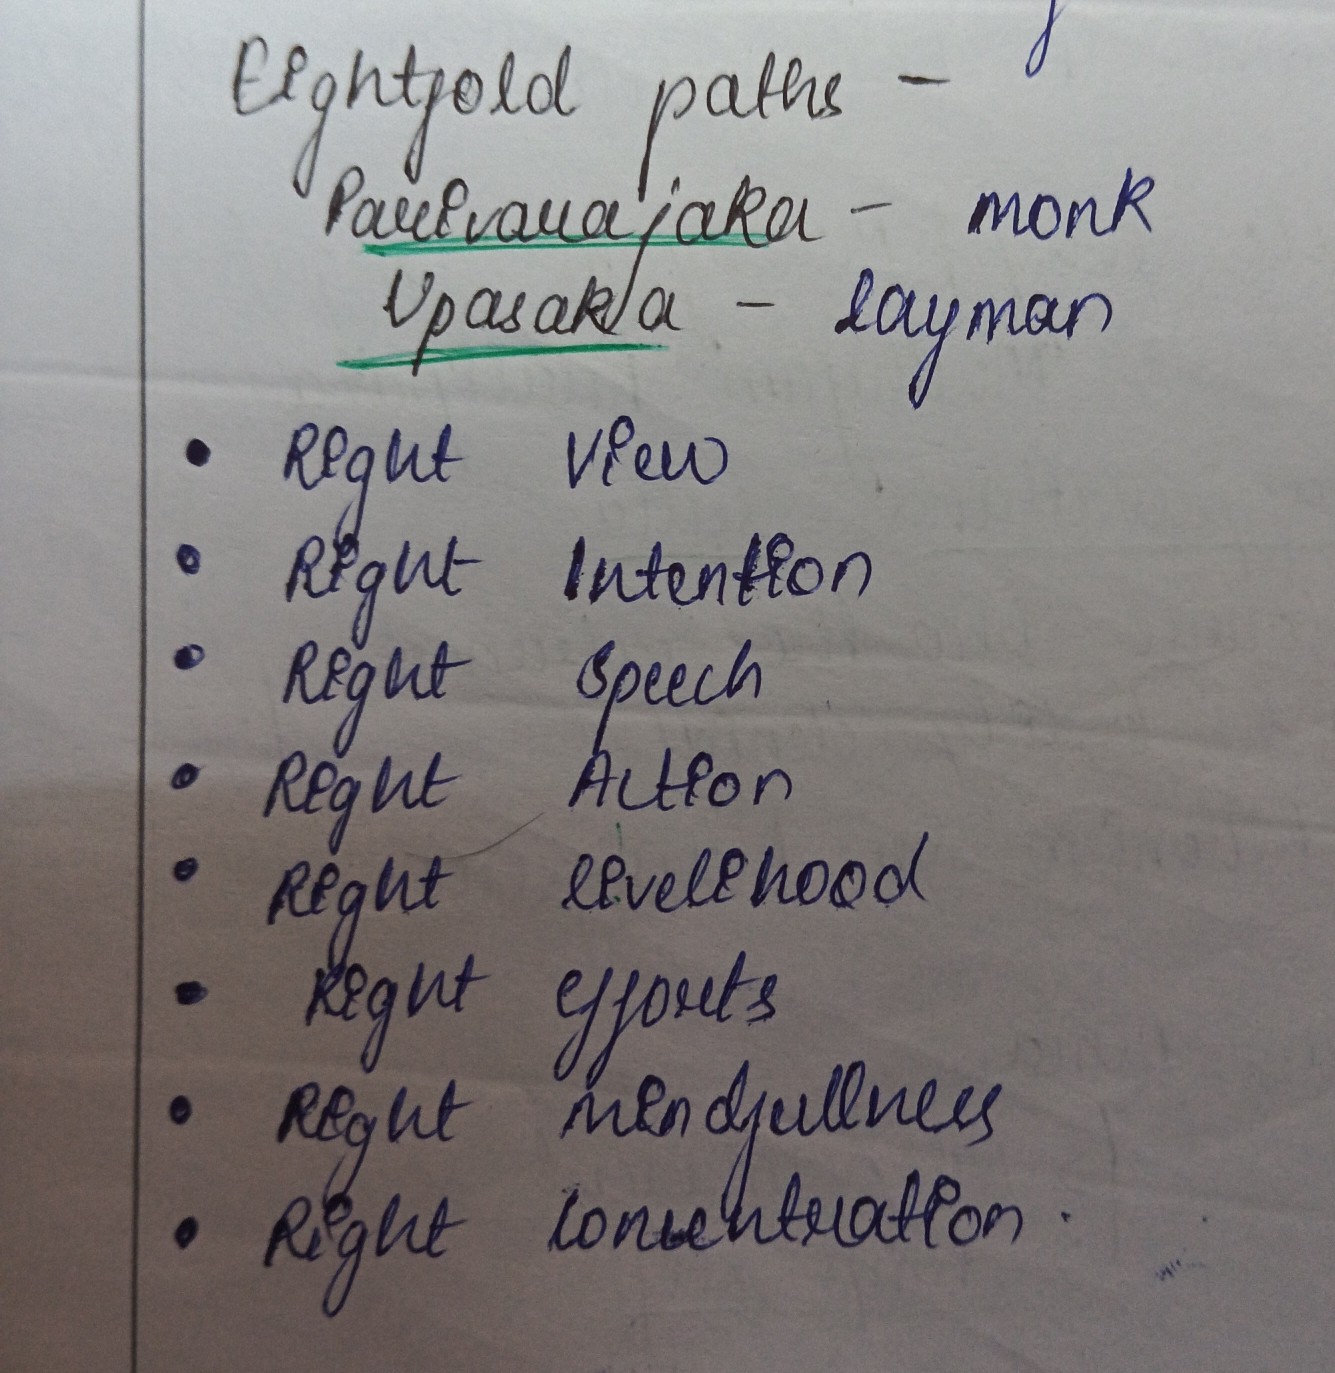 Eightfold paths -
Parivarajaka - monk
Upasaka - layman
• Right View
• Right Intention
• Right Speech
• Right Action
• Right livelihood
• Right efforts
• Right mindfullness
• Right concentration.